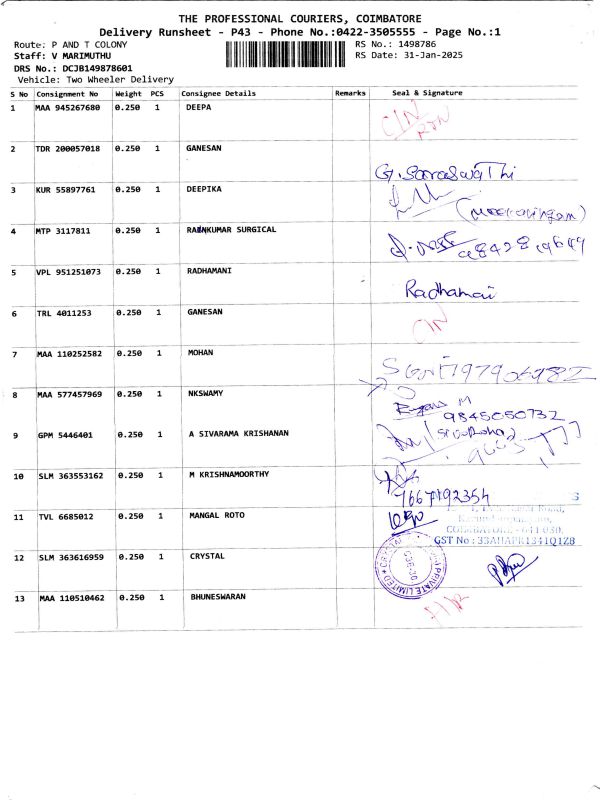 THE PROFESSIONAL COURIERS, COIMBATORE
Delivery Runsheet - P43 - Phone No.:0422-3505555 - Page No.:1
Route: P AND T COLONY RS No.: 1498786
Staff: V MARIMUTHU RS Date: 31-Jan-2025
DRS No.: DCJB149878601
Vehicle: Two Wheeler Delivery
S No Consignment No Weight PCS Consignee Details Remarks Seal & Signature
1 MAA 945267680 0.250 1 DEEPA
2 TDR 200057018 0.250 1 GANESAN
G. SaraswaThi
3 KUR 55897761 0.250 1 DEEPIKA
4 MTP 3117811 0.250 1 RAINKUMAR SURGICAL
5 VPL 951251073 0.250 1 RADHAMANI
Radhamai
6 TRL 4011253 0.250 1 GANESAN
7 MAA 110252582 0.250 1 MOHAN
8 MAA 577457969 0.250 1 NKSWAMY
9845050732
9 GPM 5446401 0.250 1 A SIVARAMA KRISHANAN
10 SLM 363553162 0.250 1 M KRISHNAMOORTHY
11 TVL 6685012 0.250 1 MANGAL ROTO
COIMBATORE - 641 030.
GST No : 33AHAPR1341Q1ZB
12 SLM 363616959 0.250 1 CRYSTAL
PRIVATE LIMITED
13 MAA 110510462 0.250 1 BHUNESWARAN